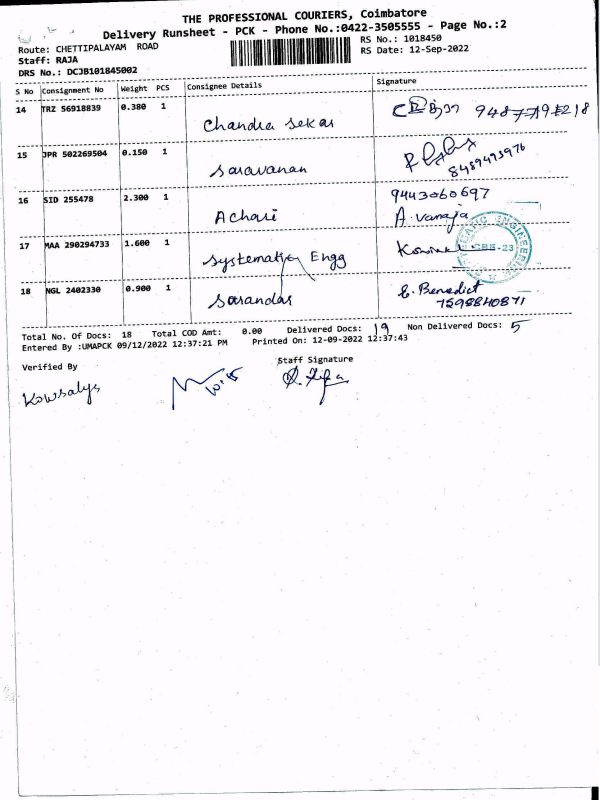 THE PROFESSIONAL COURIERS, Coimbatore
Delivery Runsheet - PCK - Phone No.:0422-3505555 - Page No.:2
Route: CHETTIPALAYAM ROAD
RS No.: 1018450
Staff: RAJA
RS Date: 12-Sep-2022
DRS No.: DCJB101845002
S No Consignment No Weight PCS Consignee Details Signature
14 TRZ 56918839 0.380 1 Chandra Sekar
15 JPR 502269504 0.150 1 Saravanan 8489493976
16 SID 255478 2.300 1 Achari 9443060697
A. Vanaja
17 MAA 290294733 1.600 1 Systematic Engg
18 NGL 2402330 0.900 1 Sarandas E. Benedict
7598840871
Total No. Of Docs: 18 Total COD Amt: 0.00 Delivered Docs: 19 Non Delivered Docs: 5
Entered By :UMAPCK 09/12/2022 12:37:21 PM Printed On: 12-09-2022 12:37:43
Verified By Staff Signature
Kowsalya